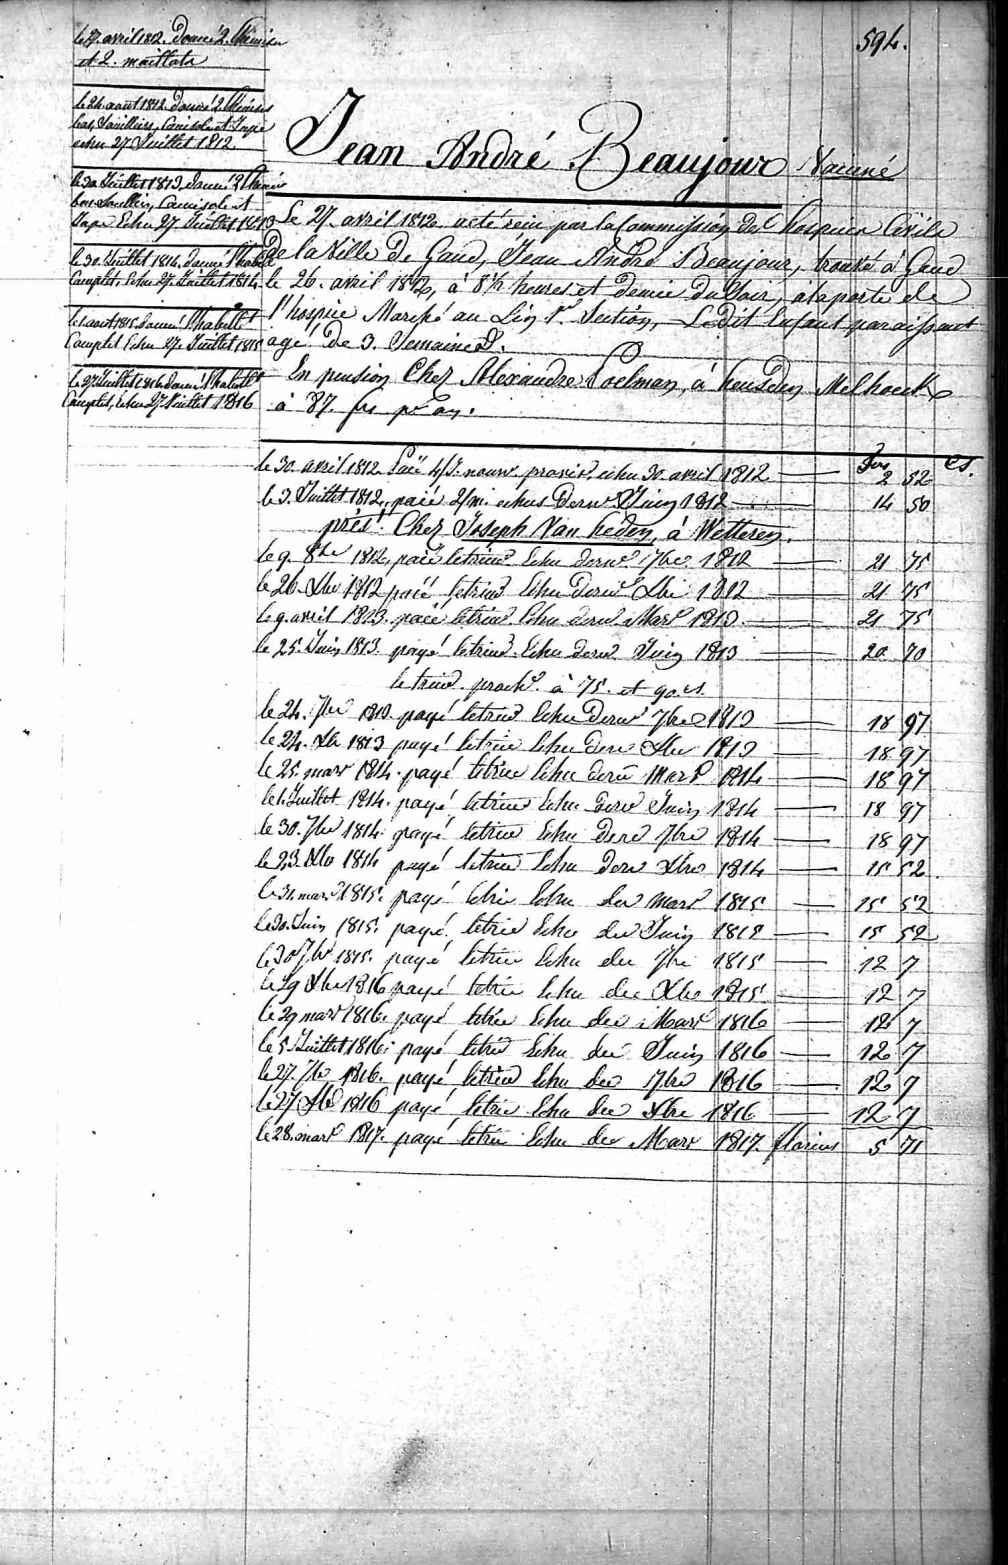 594.
le 27. avril 1812. donné 2. Chemises
et 2. maillots
le 24. aout 1812. donné 2 Chemises
bas, Souilliers, Camisole et Jupe
echu 27 Juillet 1812.
le 30 Juillet 1813, donné 2 Chemis
bas Souilliers, Camisole et
Jupe Echu 27. Juillet 1813
le 30. Juillet 1814. donné l'habill
Complet, Echu 27. Juillet 1814
le 1. aout 1815 donné l'habillt
Complet Echu 27. Juillet 1815
le 27 Juillet 1816. donné l'habillt
Complet, Echu 27 Juillet 1816
Jean André Beaujour Vacciné
Le 27. avril 1812. a eté reçu par la Commission des hospices Civils
de la Ville de Gand, Jean André Beaujour, trouvé à Gand
le 26. avril 1812, à 8½ heures et demie du Soir, a la porte de
l'hospice Marché au Lin 1e Section, Ledit Enfant paraissant
agé de 3. Semaines.
En pension Chez Alexandre Poelman, à heusden Melhoeck
à 87. frs pr an.
frs cs.
le 30. avril 1812 Paié 4/J. nourr provis echu 30. avril 1812 2 52
le 3. Juillet 1812, paié 2/m. echus dernr Juin 1812 14 50
prést Chez Joseph Van heden, à Wetteren.
le 9. 8bre 1812, paié letrims Echu dernr 7bre 1812 21 75
le 26 Xbre 1812 paié letrims Echu dernr Xbre 1812 21 75
le 9. avril 1813. paié letrims Echu dernr Mars 1813. 21 75
le 25. Juin 1813. payé letrims Echu dernr Juin 1813 20 70
le trims. proch. à 75. et 90. cs.
le 24. 7bre 1813 payé letrims Echu Dernr 7bre 1813 18 97
le 24. Xbre 1813 payé letrim Echu dern Xbre 1813 18 97
le 25. mars 1814. payé letrim Echu dern Mars 1814 18 97
le 1. Juillet 1814. payé letrim Echu dern Juin 1814 18 97
le 30. 7bre 1814. payé letrim Echu dern 7bre 1814 18 97
le 23. Xbre 1814 payé letrim Echu dern Xbre 1814 15 52
le 31. mars 1815. payé letrim Echu der mars 1815 15 52
le 30. Juin 1815. payé letrim Echu der Juin 1815 15 52
le 30 7br 1815. payé letrim Echu der 7bre 1815 12 7
le 29 Xbre 1816 payé letrim Echu der Xbre 1815 12 7
le 29 mars 1816. payé letrim Echu der Mars 1816 12 7
le 5. Juillet 1816. payé letrim Echu der Juin 1816 12 7
le 27. 7bre 1816. payé letrim Echu der 7bre 1816 12 7
le 27 Xbre 1816 payé letrim Echu der Xbre 1816 12 7
le 28. mars 1817. payé letrim Echu der Mars 1817. florins 5 71